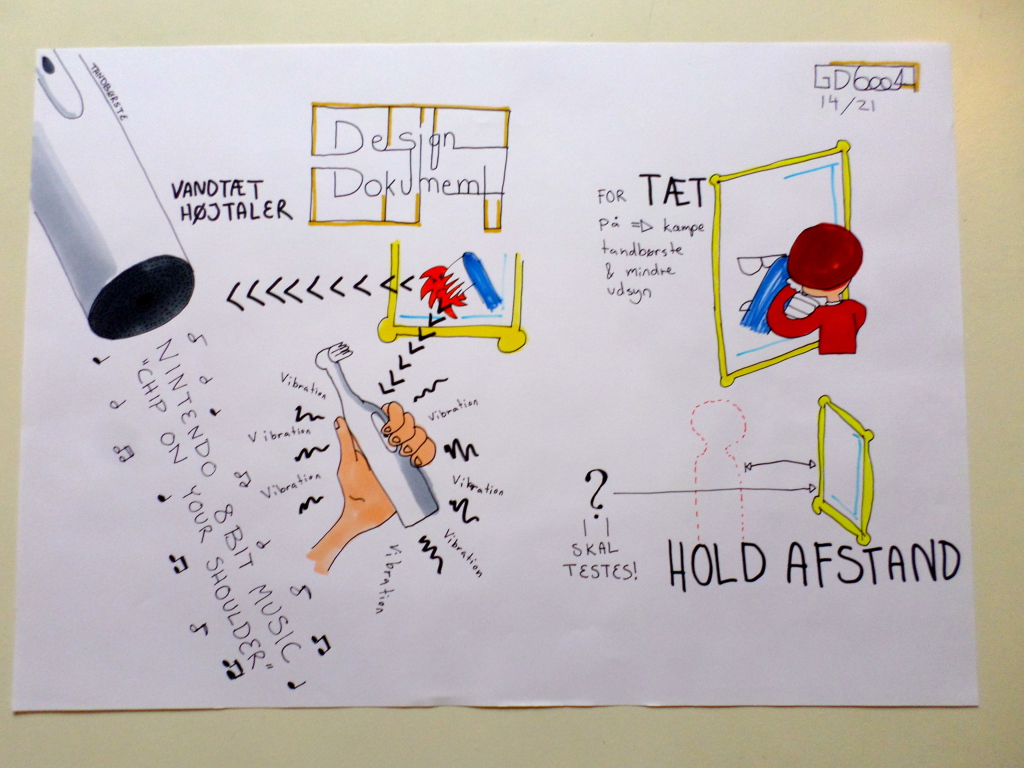 TANDBØRSTE
GD6004
14/21
Design
Dokument
VANDTÆT
HØJTALER
FOR TÆT
På => kampe
tandbørste
& mindre
udsyn
Vibration
Vibration
Vibration
Vibration
Vibration
Vibration
Vibration
NINTENDO 8BIT MUSIC
"CHIP ON YOUR SHOULDER"
?
SKAL
TESTES!
HOLD AFSTAND